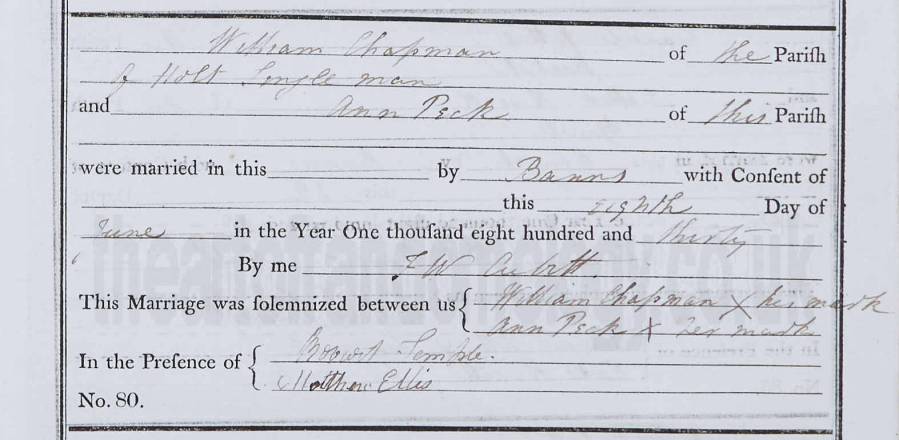 William Chapman of the Pariſh
of Holt Single man
and Ann Peck of this Pariſh
were married in this by Banns with Conſent of
this eighth Day of
June in the Year One thouſand eight hundred and thirty
By me F W Cubitt.
This Marriage was ſolemnized between us William Chapman X his mark
Ann Peck X her mark
In the Preſence of Temple.
Matthew Ellis
No. 80.